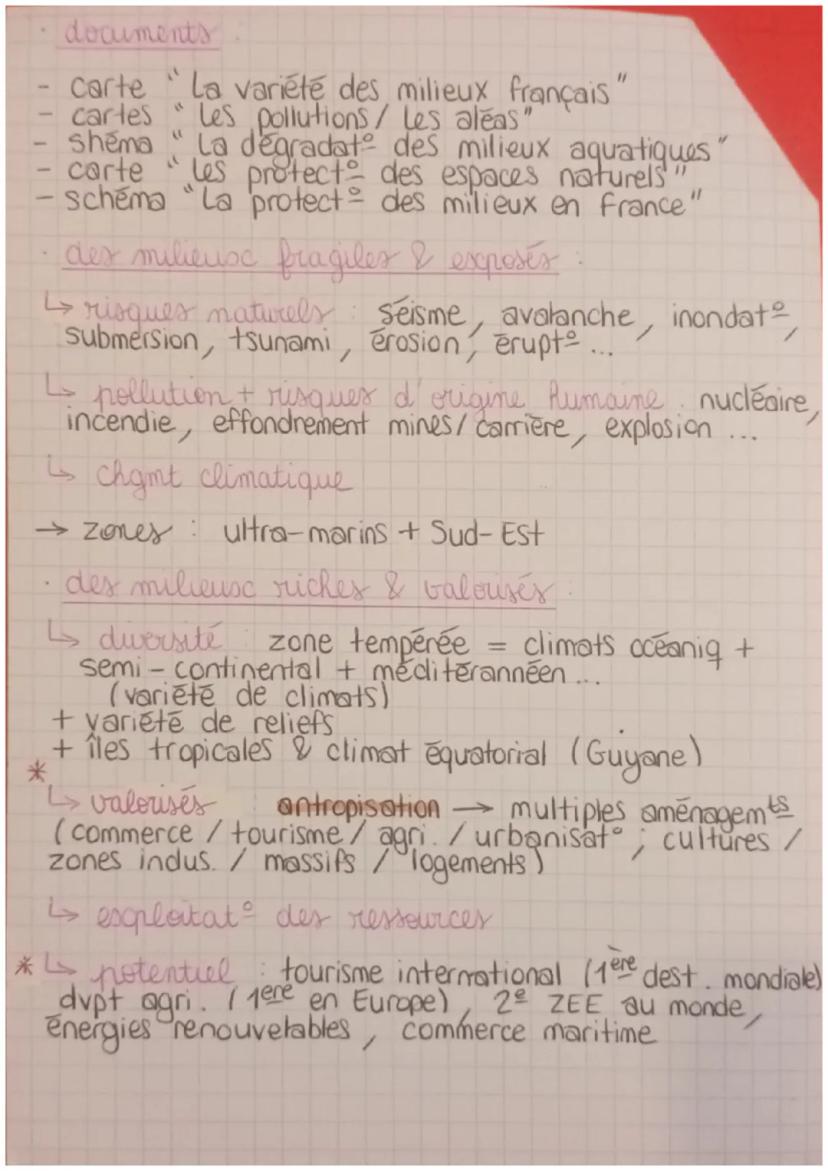 · documents :
- carte "La variété des milieux français"
- cartes "Les pollutions / les aléas"
- shéma "La dégradat° des milieux aquatiques"
- carte "Les protect° des espaces naturels"
- schéma "La protect° des milieux en France"
· des milieux fragiles & exposés :
↳ risques naturels : séisme, avalanche, inondat°,
submersion, tsunami, érosion, érupt° ...
↳ pollution + risques d'origine humaine : nucléaire,
incendie, effondrement mines / carrière, explosion ...
↳ chgmt climatique
→ zones : ultra-marins + Sud-Est
· des milieux riches & valorisés :
↳ diversité : zone tempérée = climats océaniq +
semi-continental + méditérannéen ...
(variété de climats)
+ variété de reliefs
+ îles tropicales & climat équatorial (Guyane)
*
↳ valorisés : antropisation → multiples aménagemts
(commerce / tourisme / agri. / urbanisat° ; cultures /
zones indus. / massifs / logements)
↳ exploitat° des ressources
* ↳ potentiel : tourisme international (1ère dest. mondiale)
dvpt agri. (1ere en Europe), 2e ZEE au monde,
énergies renouvelables, commerce maritime